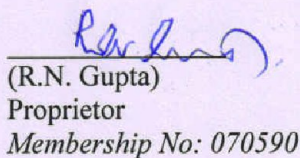 (R.N. Gupta)
Proprietor
Membership No: 070590